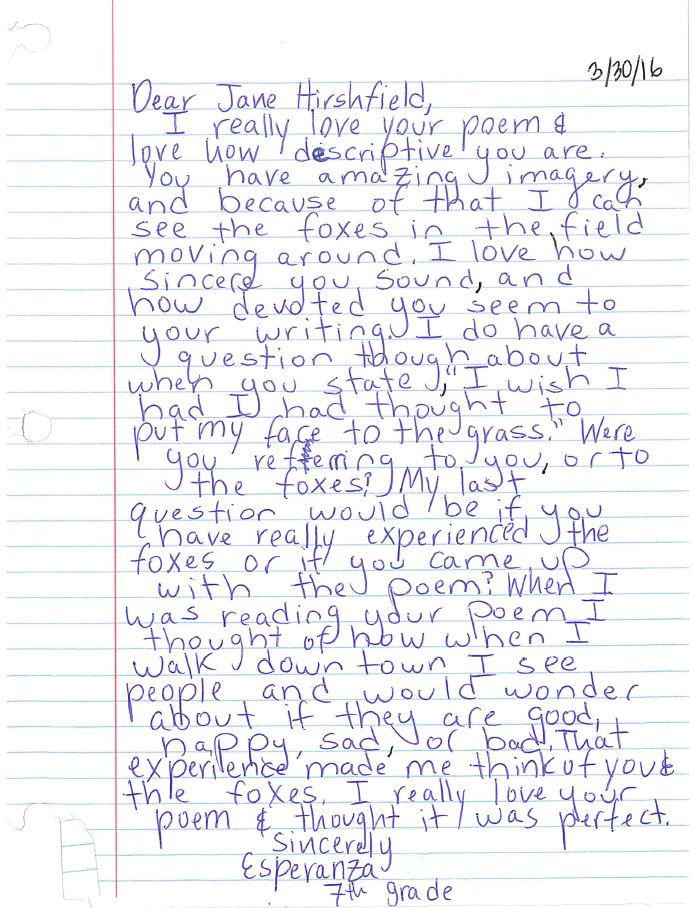 3/30/16
Dear Jane Hirshfield,
I really love your poem &
love how descriptive you are.
You have amazing imagery,
and because of that I can
see the foxes in the field
moving around. I love how
sincere you sound, and
how devoted you seem to
your writing. I do have a
question though about
when you state, "I wish I
had I had thought to
put my face to the grass." Were
you reffering to you, or to
the foxes? My last
question would be if you
have really experienced the
foxes or if you came up
with the poem? When I
was reading your poem I
thought of how when I
walk down town I see
people and would wonder
about if they are good,
happy, sad, or bad. That
experience made me think of you &
the foxes. I really love your
poem & thought it was perfect.
Sincerely
Esperanza
7th grade